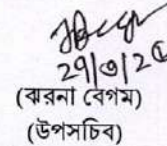 29/৩/২৫
(ঝরনা বেগম)
(উপসচিব)